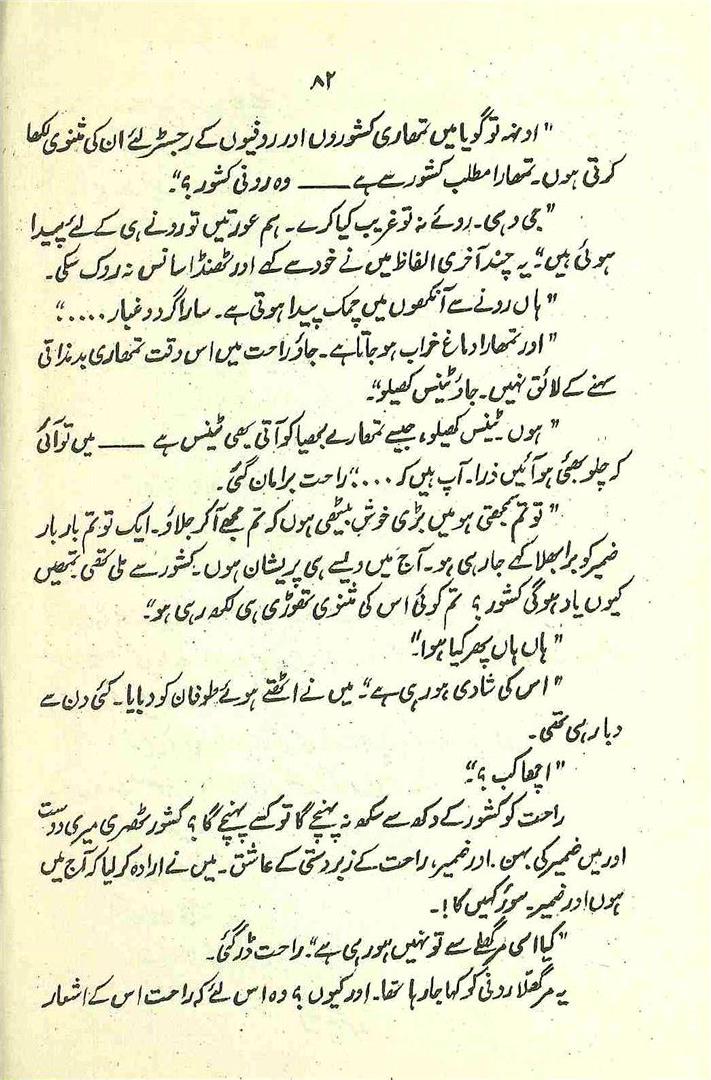 ۸۲
"اونہہ تو گویا میں تمھاری کشوروں اور روفیوں کے رجسٹر لئے ان کی مثنوی لکھا
کرتی ہوں۔ تمھارا مطلب کشور سے ہے ——— وہ رونی کشور؟"۔
"جی وہی۔ روئے نہ تو غریب کیا کرے۔ ہم عورتیں تو رونے ہی کے لئے پیدا
ہوئی ہیں"۔ یہ چند آخری الفاظ میں نے خود سے کہے اور ٹھنڈا سانس نہ روک سکی۔
"ہاں رونے سے آنکھوں میں چمک پیدا ہوتی ہے۔ سارا گرد و غبار ....."
"اور تمھارا دماغ خراب ہو جاتا ہے۔ جاؤ راحت میں اس وقت تمھاری بدمذاتی
سہنے کے لائق نہیں۔ جاؤ ٹینس کھیلو"۔
"ہوں ٹینس کھیلو، جیسے تمھارے بھیا کو آتی بھی ٹینس ہے ——— میں تو آئی
کہ چلو بھئی ہو آئیں ذرا۔ آپ ہیں کہ ...." راحت برا مان گئی۔
"تو تم سمجھتی ہو میں بڑی خوش بیٹھی ہوں کہ تم مجھے آ کر جلاؤ۔ ایک تو تم بار بار
ضمیر کو برا بھلا کہے جا رہی ہو۔ آج میں ویسے ہی پریشان ہوں۔ کشور سے ملی تھی۔ تمھیں
کیوں یاد ہوگی کشور؟ تم کوئی اس کی مثنوی تھوڑی ہی لکھ رہی ہو"۔
"ہاں ہاں پھر کیا ہوا"۔
"اس کی شادی ہو رہی ہے"۔ میں نے اٹھتے ہوئے طوفان کو دبایا۔ کئی دن سے
دبا رہی تھی۔
"اچھا کب؟"۔
راحت کو کشور کے دکھ سے سکھ نہ پہنچے گا تو کسے پہنچے گا؟ کشور ٹھہری میری دوست
اور میں ضمیر کی بہن۔ اور ضمیر، راحت کے زبردستی کے عاشق۔ میں نے ارادہ کر لیا کہ آج میں
ہوں اور ضمیر۔ سوَر کہیں کا!۔
"کیا اسی مرگھلے سے تو نہیں ہو رہی ہے"۔ راحت ڈر گئی۔
یہ مرگھلا رونی کو کہا جا رہا تھا۔ اور کیوں؟ وہ اس لئے کہ راحت اس کے اشعار